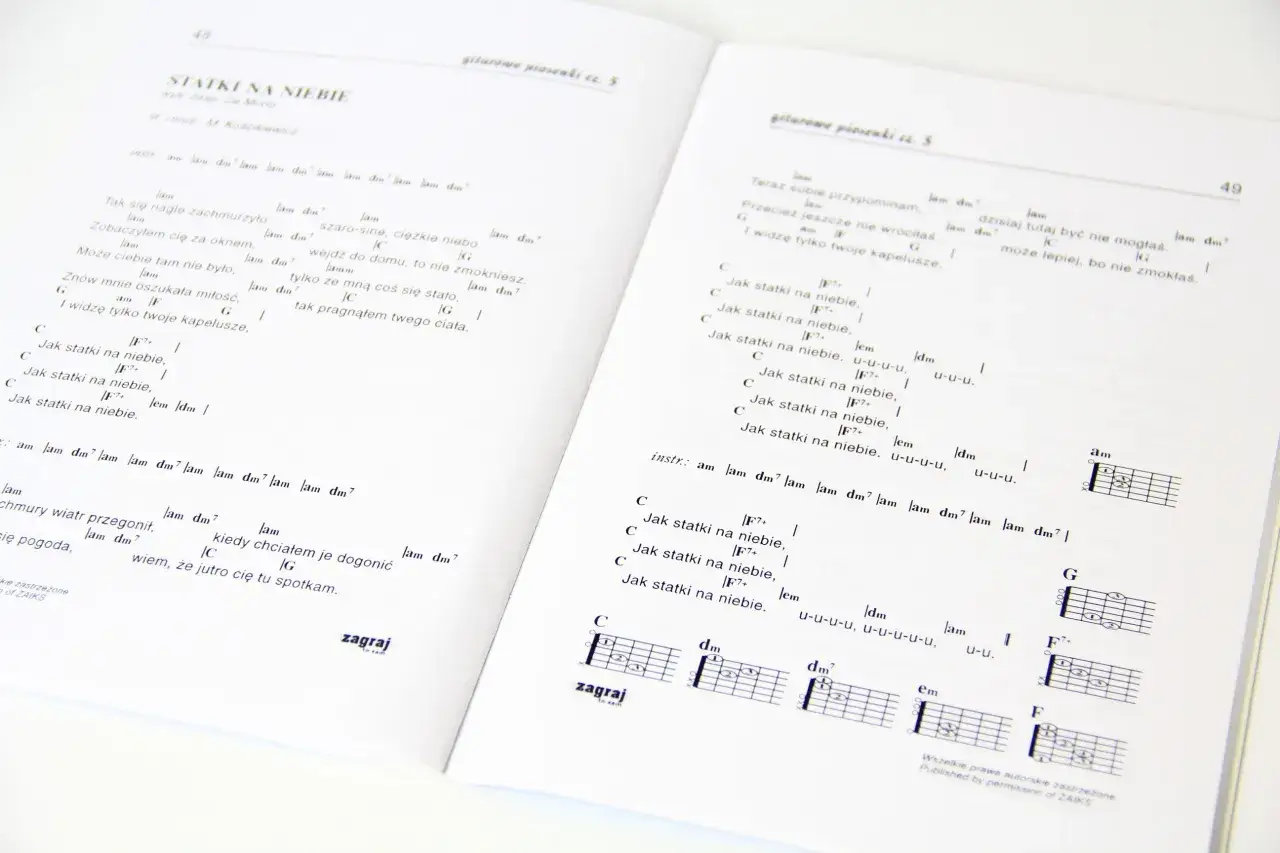 48
gitarowe piosenki cz. 5
STATKI NA NIEBIE
De Mono
M. Kościkiewicz
am |am dm7 |am |am dm7 |am |am dm7 |am |am dm7
|am |am dm7 |am |am dm7
Tak się nagle zachmurzyło szaro-sine, ciężkie niebo
|am |am dm7 |C |G
Zobaczyłem cię za oknem, wejdź do domu, to nie zmokniesz.
|am |am dm7 |amm |am dm7
Może ciebie tam nie było, tylko ze mną coś się stało,
|am |am dm7 |C |G |
Znów mnie oszukała miłość, tak pragnąłem twego ciała.
G am |F G |
I widzę tylko twoje kapelusze,
C |F7+ |
Jak statki na niebie,
C |F7+ |
Jak statki na niebie,
C |F7+ |em |dm |
Jak statki na niebie.
.: am |am dm7 |am |am dm7 |am |am dm7 |am |am dm7
|am |am dm7 |am |am dm7
chmury wiatr przegonił, kiedy chciałem je dogonić
|am dm7 |C |G
się pogoda, wiem, że jutro cię tu spotkam.
zastrzeżone
of ZAIKS
zagraj
to sam
gitarowe piosenki cz. 5
49
|am |am dm7 |am |am dm7
Teraz sobie przypominam, dzisiaj tutaj być nie mogłaś.
|am |am dm7 |C |G |
Przecież jeszcze nie wróciłaś może lepiej, bo nie zmokłaś.
G am |F G |
I widzę tylko twoje kapelusze.
C |F7+ |
Jak statki na niebie,
C |F7+ |
Jak statki na niebie,
C |F7+ |em |dm |
Jak statki na niebie. u-u-u-u, u-u-u.
C |F7+ |
Jak statki na niebie,
C |F7+ |
Jak statki na niebie,
C |F7+ |em |dm |
Jak statki na niebie. u-u-u-u, u-u-u.
instr.: am |am dm7 |am |am dm7 |am |am dm7 |am |am dm7 |
C |F7+ |
Jak statki na niebie,
C |F7+ |
Jak statki na niebie,
C |F7+ |em |dm |am |
Jak statki na niebie. u-u-u-u, u-u-u-u-u, u-u.
am
G
F7+
F
C dm dm7 em
zagraj
to sam
Wszelkie prawa autorskie zastrzeżone
Published by permission of ZAIKS